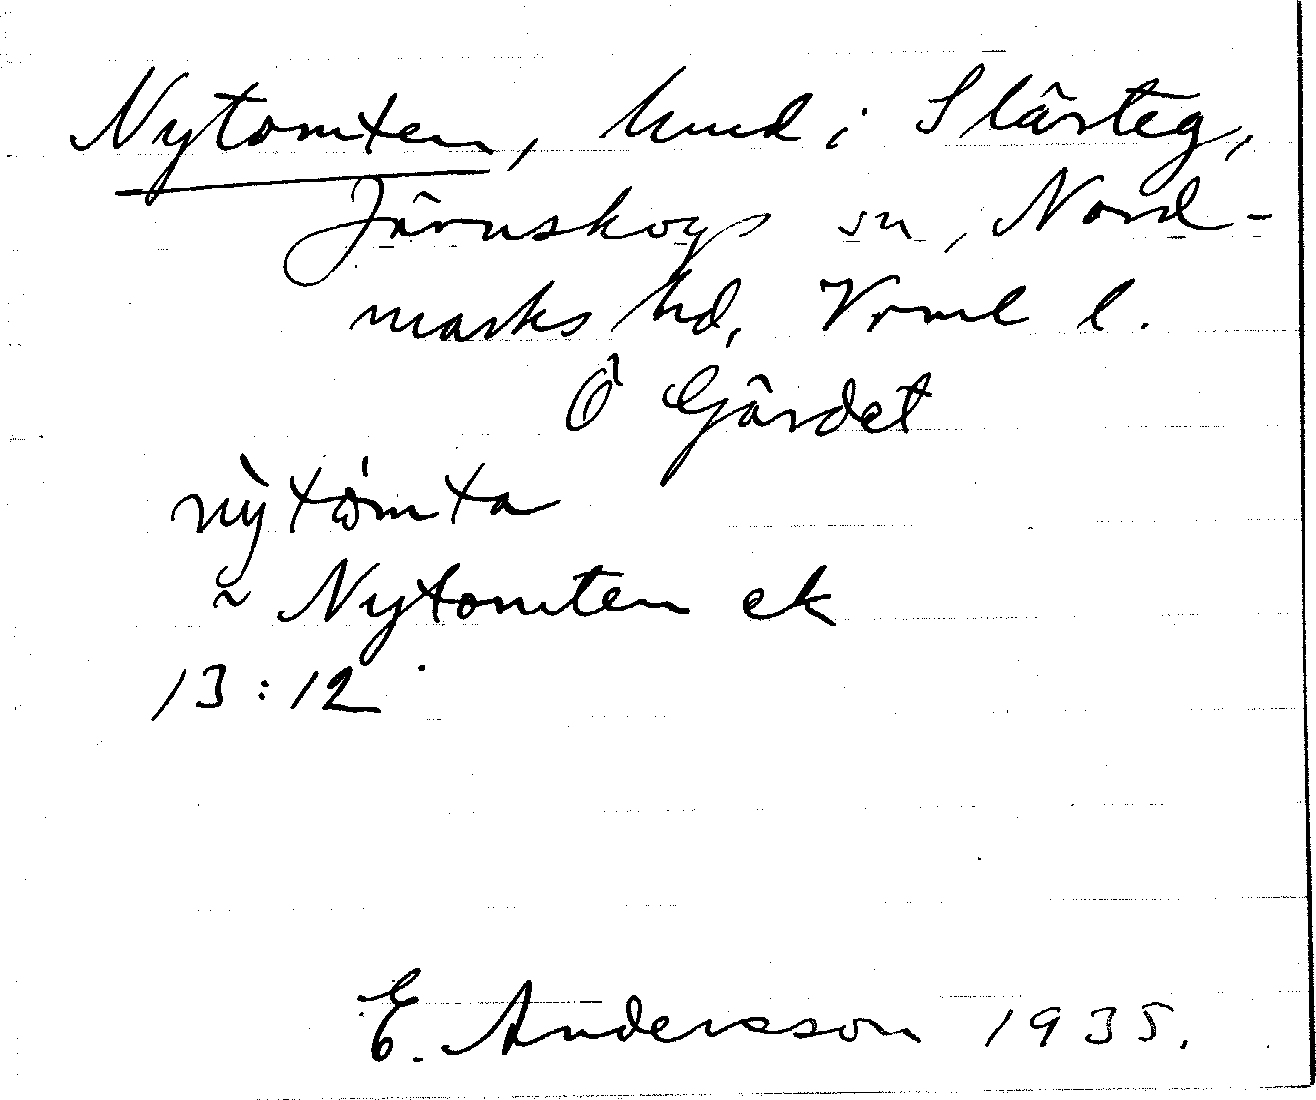 Nytomten, hmd i Slärteg,
Järnskogs sn, Nord-
marks hd, Vrml l.
Ö Gärdet
nỳtòmta
~ Nytomten ek
13:12
E. Andersson 1935.